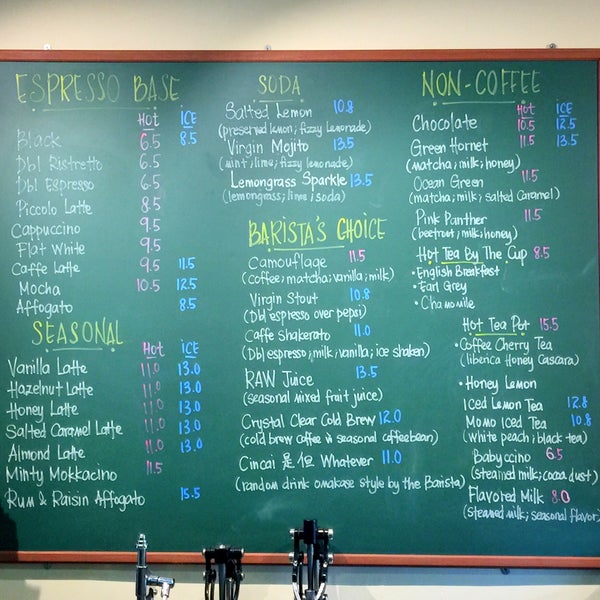 ESPRESSO BASE
Hot ICE
Black 6.5 8.5
Dbl Ristretto 6.5
Dbl Espresso 6.5
Piccolo Latte 8.5
Cappuccino 9.5
Flat White 9.5
Caffe Latte 9.5 11.5
Mocha 10.5 12.5
Affogato 8.5
SEASONAL
Hot ICE
Vanilla Latte 11.0 13.0
Hazelnut Latte 11.0 13.0
Honey Latte 11.0 13.0
Salted Caramel Latte 11.0 13.0
Almond Latte 11.0 13.0
Minty Mokkacino 11.5
Rum & Raisin Affogato 15.5
SODA
Salted Lemon 10.8
(preserved lemon; fizzy lemonade)
Virgin Mojito 13.5
(mint; lime; fizzy lemonade)
Lemongrass Sparkle 13.5
(lemongrass; lime; soda)
BARISTA'S CHOICE
Camouflage 11.5
(coffee; matcha; vanilla; milk)
Virgin Stout 10.8
(Dbl espresso over pepsi)
Caffe Shakerato 11.0
(Dbl espresso; milk; vanilla; ice shaken)
RAW Juice 13.5
(seasonal mixed fruit juice)
Crystal Clear Cold Brew 12.0
(cold brew coffee in seasonal coffeebean)
Cincai 是但 Whatever 11.0
(random drink omakase style by the Barista)
NON-COFFEE
Hot ICE
Chocolate 10.5 12.5
Green Hornet 11.5 13.5
(matcha; milk; honey)
Ocean Green 11.5
(matcha; milk; salted Caramel)
Pink Panther 11.5
(beetroot; milk; honey)
Hot Tea By The Cup 8.5
• English Breakfast
• Earl Grey
• Chamomile
Hot Tea Pot 15.5
• Coffee Cherry Tea
(liberica Honey Cascara)
• Honey Lemon
Iced Lemon Tea 12.8
Momo Iced Tea 10.8
(white peach; black tea)
Babyccino 6.5
(steamed milk; cocoa dust)
Flavored Milk 8.0
(steamed milk; seasonal flavor)